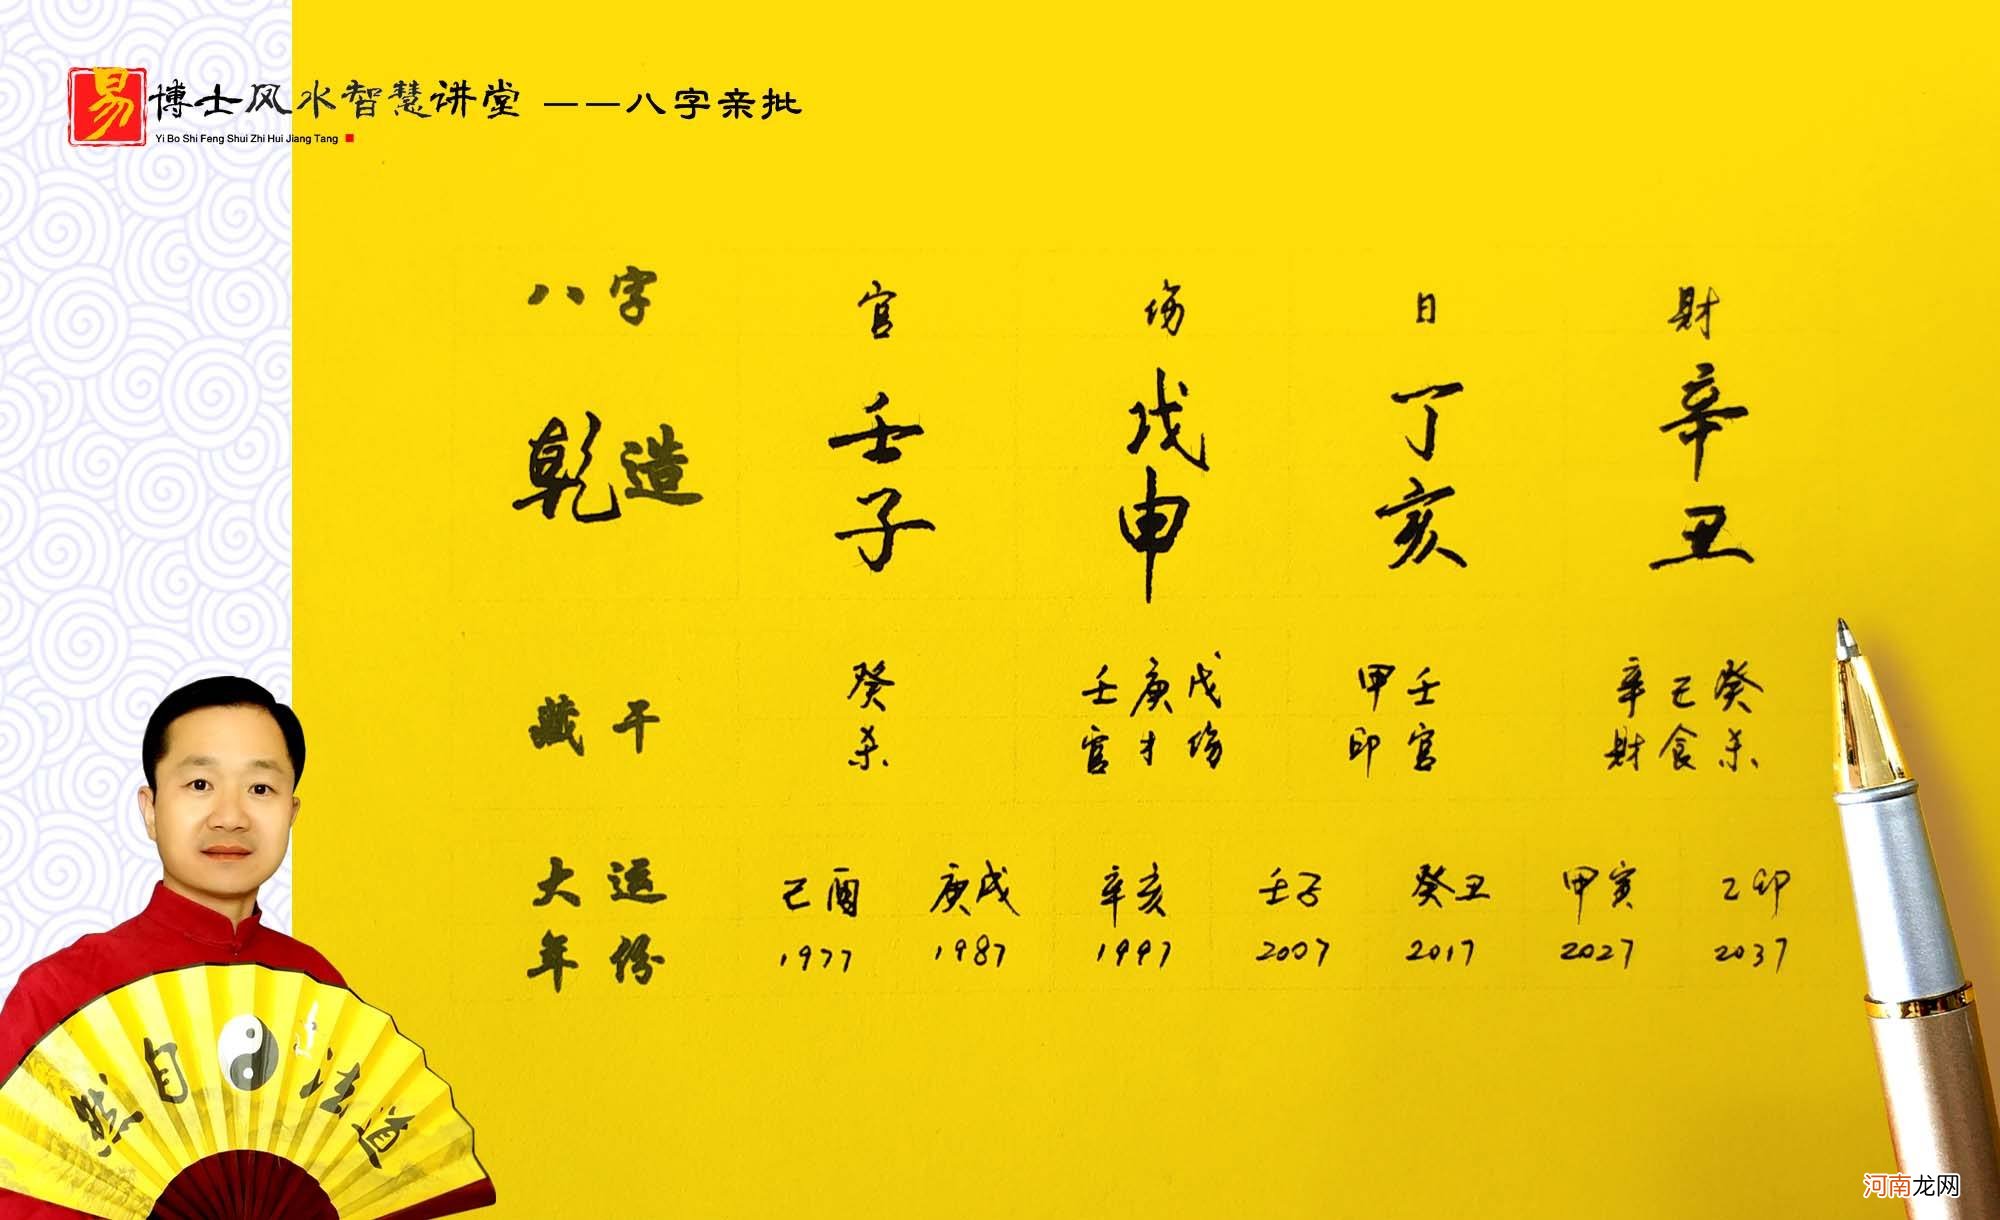 易博士风水智慧讲堂 ——八字亲批
Yi Bo Shi Feng Shui Zhi Hui Jiang Tang
八字 官 伤 日 財
乾造 壬子 戊申 丁亥 辛丑
藏干 癸 壬庚戊 甲壬 辛己癸
杀 官才伤 印官 財食杀
大运 己酉 庚戌 辛亥 壬子 癸丑 甲寅 乙卯
年份 1977 1987 1997 2007 2017 2027 2037
道法自然
河南龙网